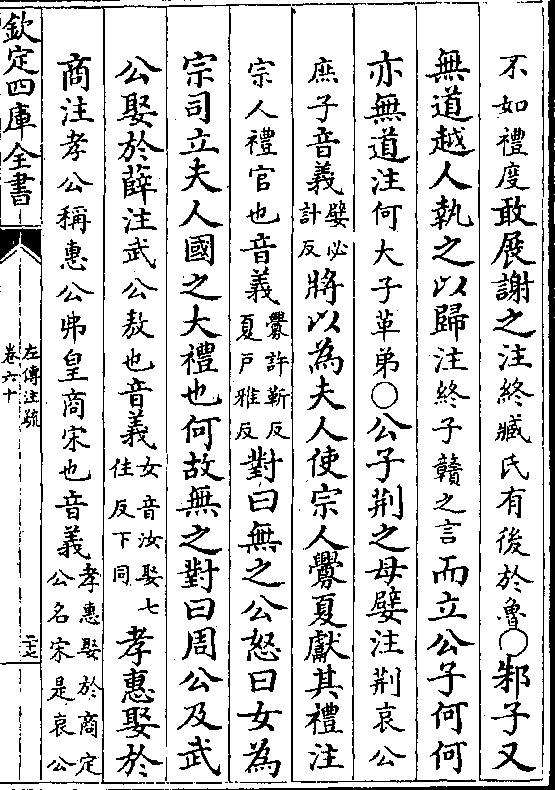 不如禮度敢展謝之注終臧氏有後於魯○邾子又
無道越人執之以歸注終子贛之言而立公子何何
亦無道注何大子革弟○公子荆之母嬖注荆哀公
庶子音義嬖必計反將以為夫人使宗人釁夏獻其禮注
宗人禮官也音義釁許靳反夏戸雅反對曰無之公怒曰女為
宗司立夫人國之大禮也何故無之對曰周公及武
公娶於薛注武公敖也音義女音汝娶七住反下同孝惠娶於
商注孝公稱惠公弗皇商宋也音義孝惠娶於商定公名宋是哀公
欽定四庫全書
左傳注疏
卷六十
二十七